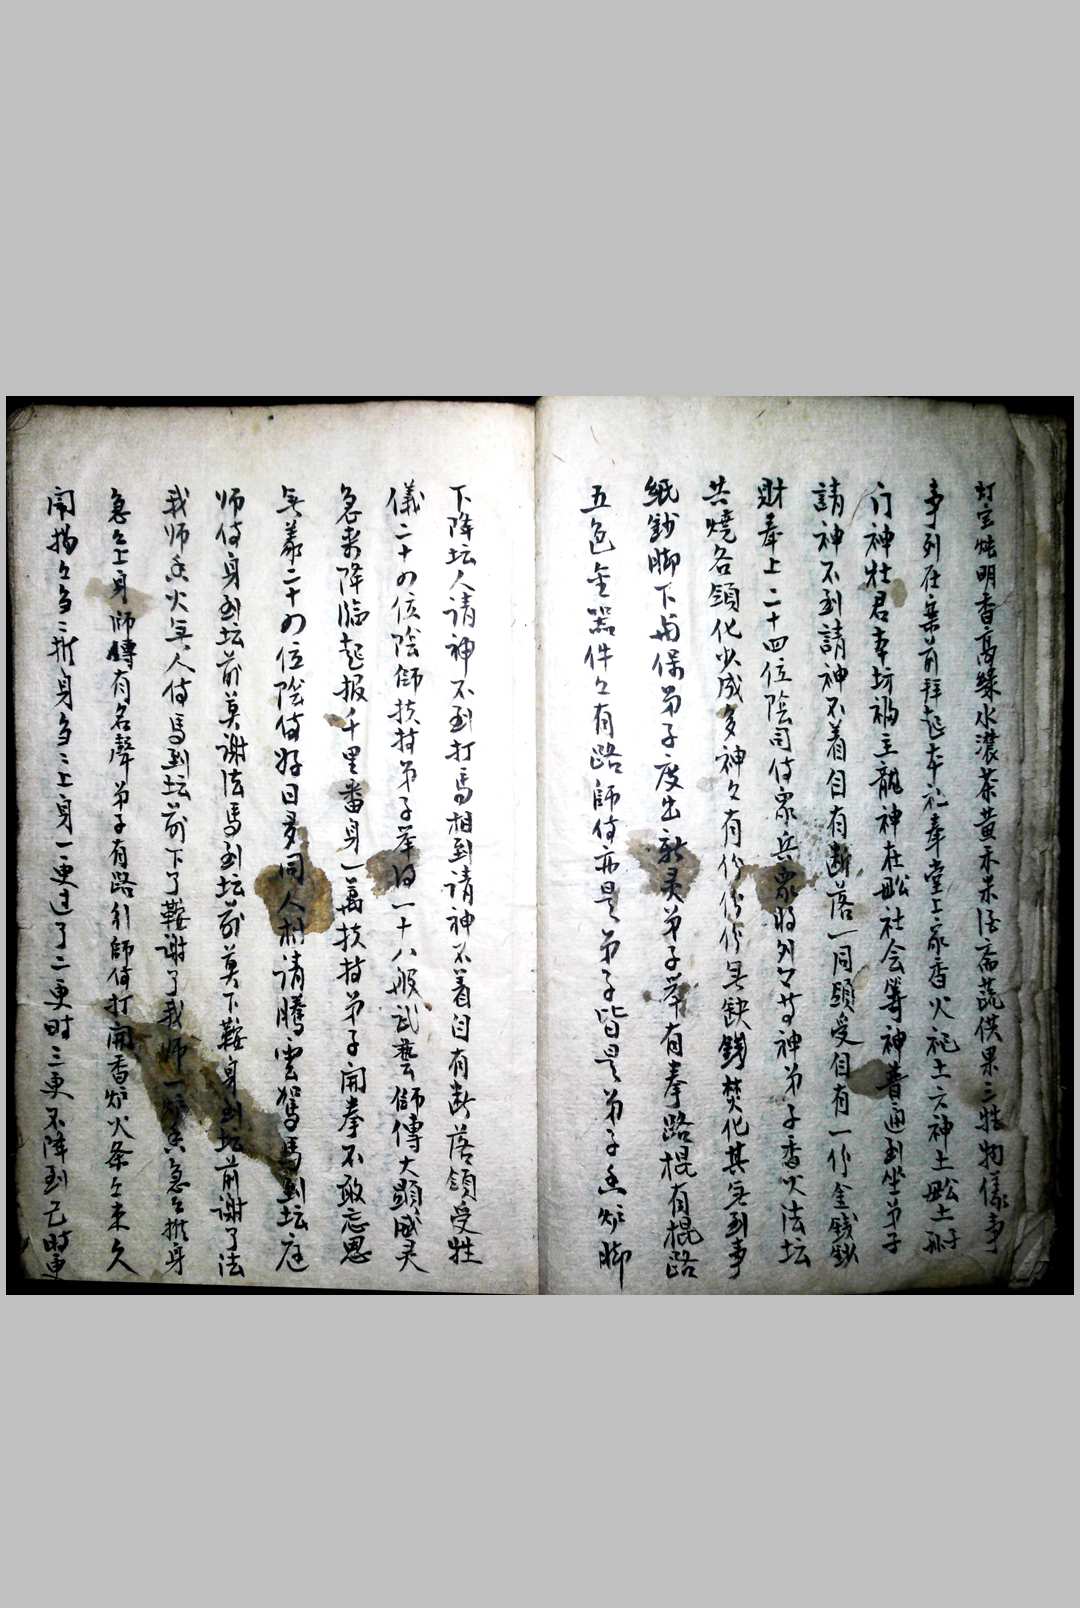 灯室炷明香高綠水濃茶黄禾果活斋蔬供果三牲物儀事
事列在案前拜起本礼奉堂上家香火祀土六神土
门神灶君本坊福主龍神在社会等神普通到坐弟子
請神不到請神不着自有断落一同領受自有一份金銭鈔
財奉上二十四位陰司侍眾兵眾将列神弟子香火法坛
共燒各領化少成多神々有份份份是缺錢焚化其完到事
紙鈔脚下甫保弟子度出新灵弟子举有拳路棍有棍路
五色金器件々有路師侍亦是弟子皆是弟子香炉脚
下降坛人請神不到打馬相到請神不着自有断落領受牲
儀二十四位陰師扶持弟子举得一十八般武藝師傳大顯威灵
急来降臨起报千里番身一萬扶持弟子開拳不敢忘恩
無義二十四位陰侍好日多同人村請騰雲駕馬到坛庭
师侍身到坛前莫谢法馬到坛前莫下鞍身到坛前谢了法
我师香火無人侍馬到坛前下了鞍谢了我师一炉香急々推身
急々上身師傳有名聲弟子有路引師侍打開香炉火条々来久
開揚々身三推身身三上身一更过了二更时三更不降到五时更